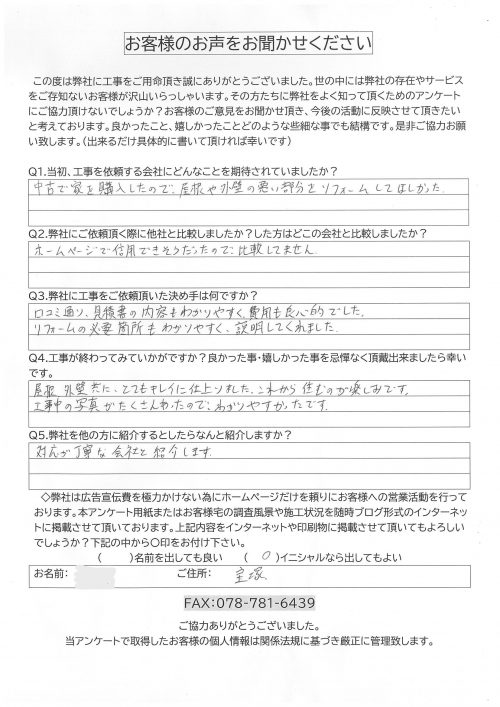 お客様のお声をお聞かせください
この度は弊社に工事をご用命頂き誠にありがとうございました。世の中には弊社の存在やサービス
をご存知ないお客様が沢山いらっしゃいます。その方たちに弊社をよく知って頂くためのアンケート
にご協力頂けないでしょうか？お客様のご意見をお聞かせ頂き、今後の活動に反映させて頂きたい
と考えております。良かったこと、嬉しかったことどのような些細な事でも結構です。是非ご協力お願
い致します。（出来るだけ具体的に書いて頂ければ幸いです）
Q1.当初、工事を依頼する会社にどんなことを期待されていましたか？
中古で家を購入したので、屋根や外壁の悪い部分をリフォームしてほしかった.
Q2.弊社にご依頼頂く際に他社と比較しましたか？した方はどこの会社と比較しましたか？
ホームページで信用できそうだったので、比較してません.
Q3.弊社に工事をご依頼頂いた決め手は何ですか？
口コミ通り、見積書の内容もわかりやすく費用も良心的でした。
リフォームの必要箇所もわかりやすく、説明してくれました.
Q4.工事が終わってみていかがですか？良かった事・嬉しかった事を忌憚なく頂戴出来ましたら幸い
です。
屋根、外壁共に、とてもキレイに仕上りました、これから住むのが楽しみです。
工事中の写真がたくさんあったので、わかりやすかったです.
Q5.弊社を他の方に紹介するとしたらなんと紹介しますか？
対応が丁寧な会社と紹介します.
◇弊社は広告宣伝費を極力かけない為にホームページだけを頼りにお客様への営業活動を行って
おります。本アンケート用紙またはお客様宅の調査風景や施工状況を随時ブログ形式のインターネッ
トに掲載させて頂いております。上記内容をインターネットや印刷物に掲載させて頂いてもよろしい
でしょうか？下記の中から〇印をお付け下さい。
（　　）名前を出しても良い　（　〇　）イニシャルなら出してもよい
お名前：　ご住所：　宝塚
FAX：078-781-6439
ご協力ありがとうございました。
当アンケートで取得したお客様の個人情報は関係法規に基づき厳正に管理致します。